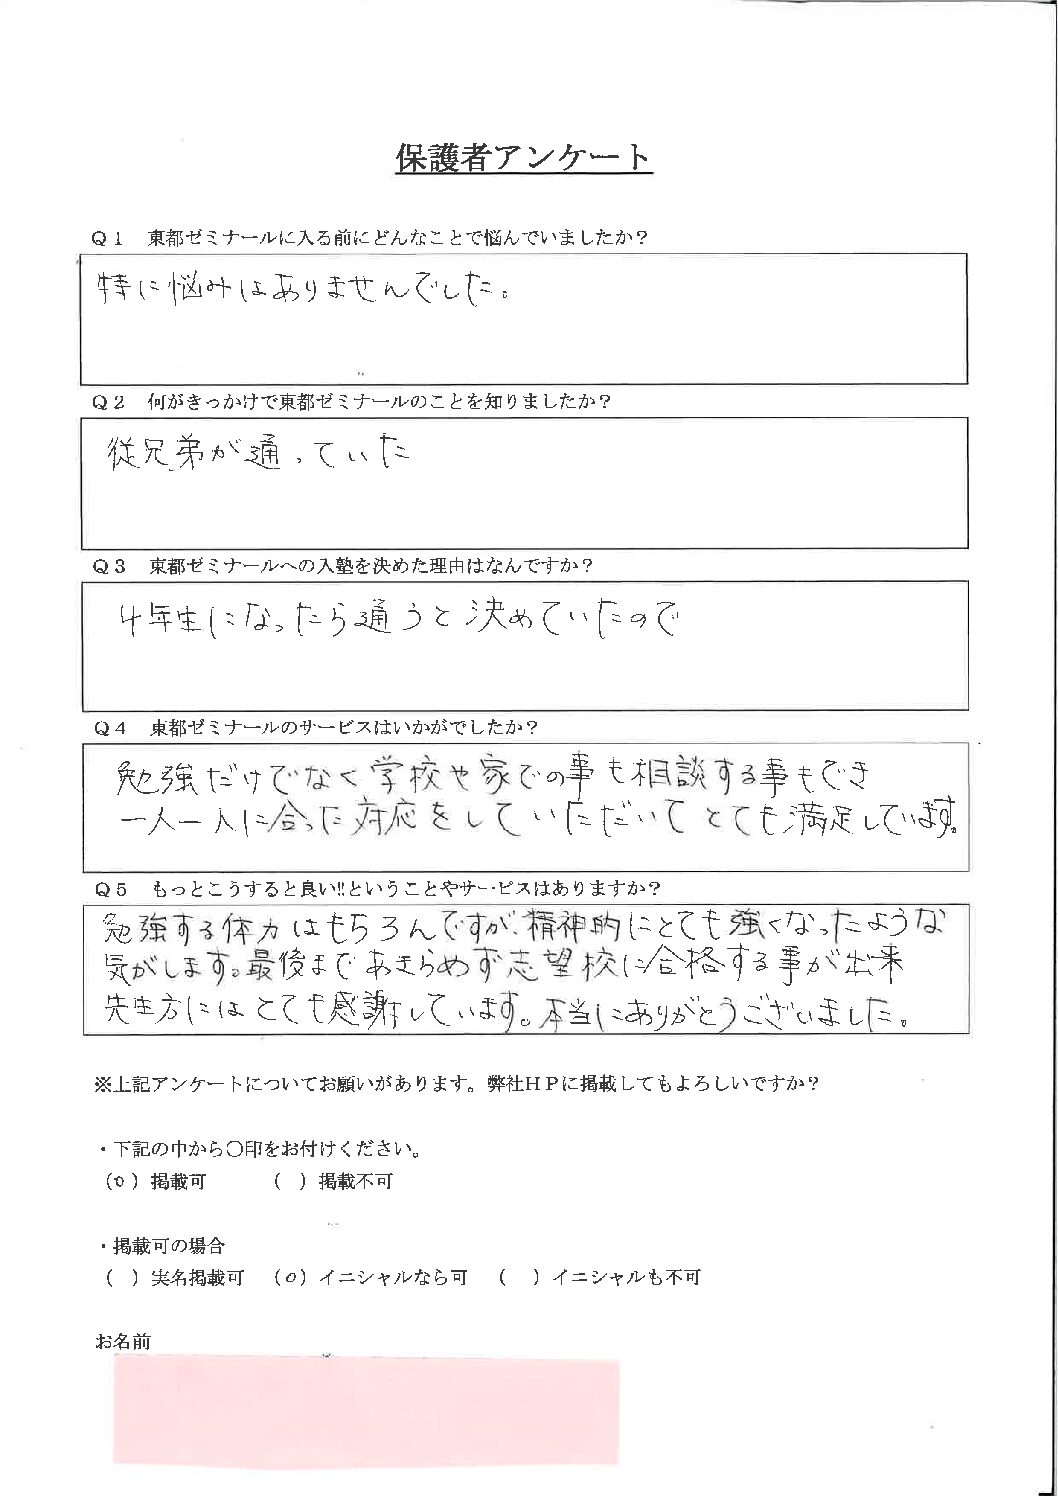 保護者アンケート
Q1 東都ゼミナールに入る前にどんなことで悩んでいましたか？
特に悩みはありませんでした。
Q2 何がきっかけで東都ゼミナールのことを知りましたか？
従兄弟が通っていた
Q3 東都ゼミナールへの入塾を決めた理由はなんですか？
4年生になったら通うと決めていたので
Q4 東都ゼミナールのサービスはいかがでしたか？
勉強だけでなく学校や家での事も相談する事もでき
一人一人に合った対応をしていただいてとても満足しています。
Q5 もっとこうすると良い!!ということやサービスはありますか？
勉強する体力はもちろんですが、精神的にとても強くなったような
気がします。最後まであきらめず志望校に合格する事が出来
先生方にはとても感謝しています。本当にありがとうございました。
※上記アンケートについてお願いがあります。弊社HPに掲載してもよろしいですか？
・下記の中から〇印をお付けください。
（o）掲載可 （ ）掲載不可
・掲載可の場合
（ ）実名掲載可 （o）イニシャルなら可 （ ）イニシャルも不可
お名前